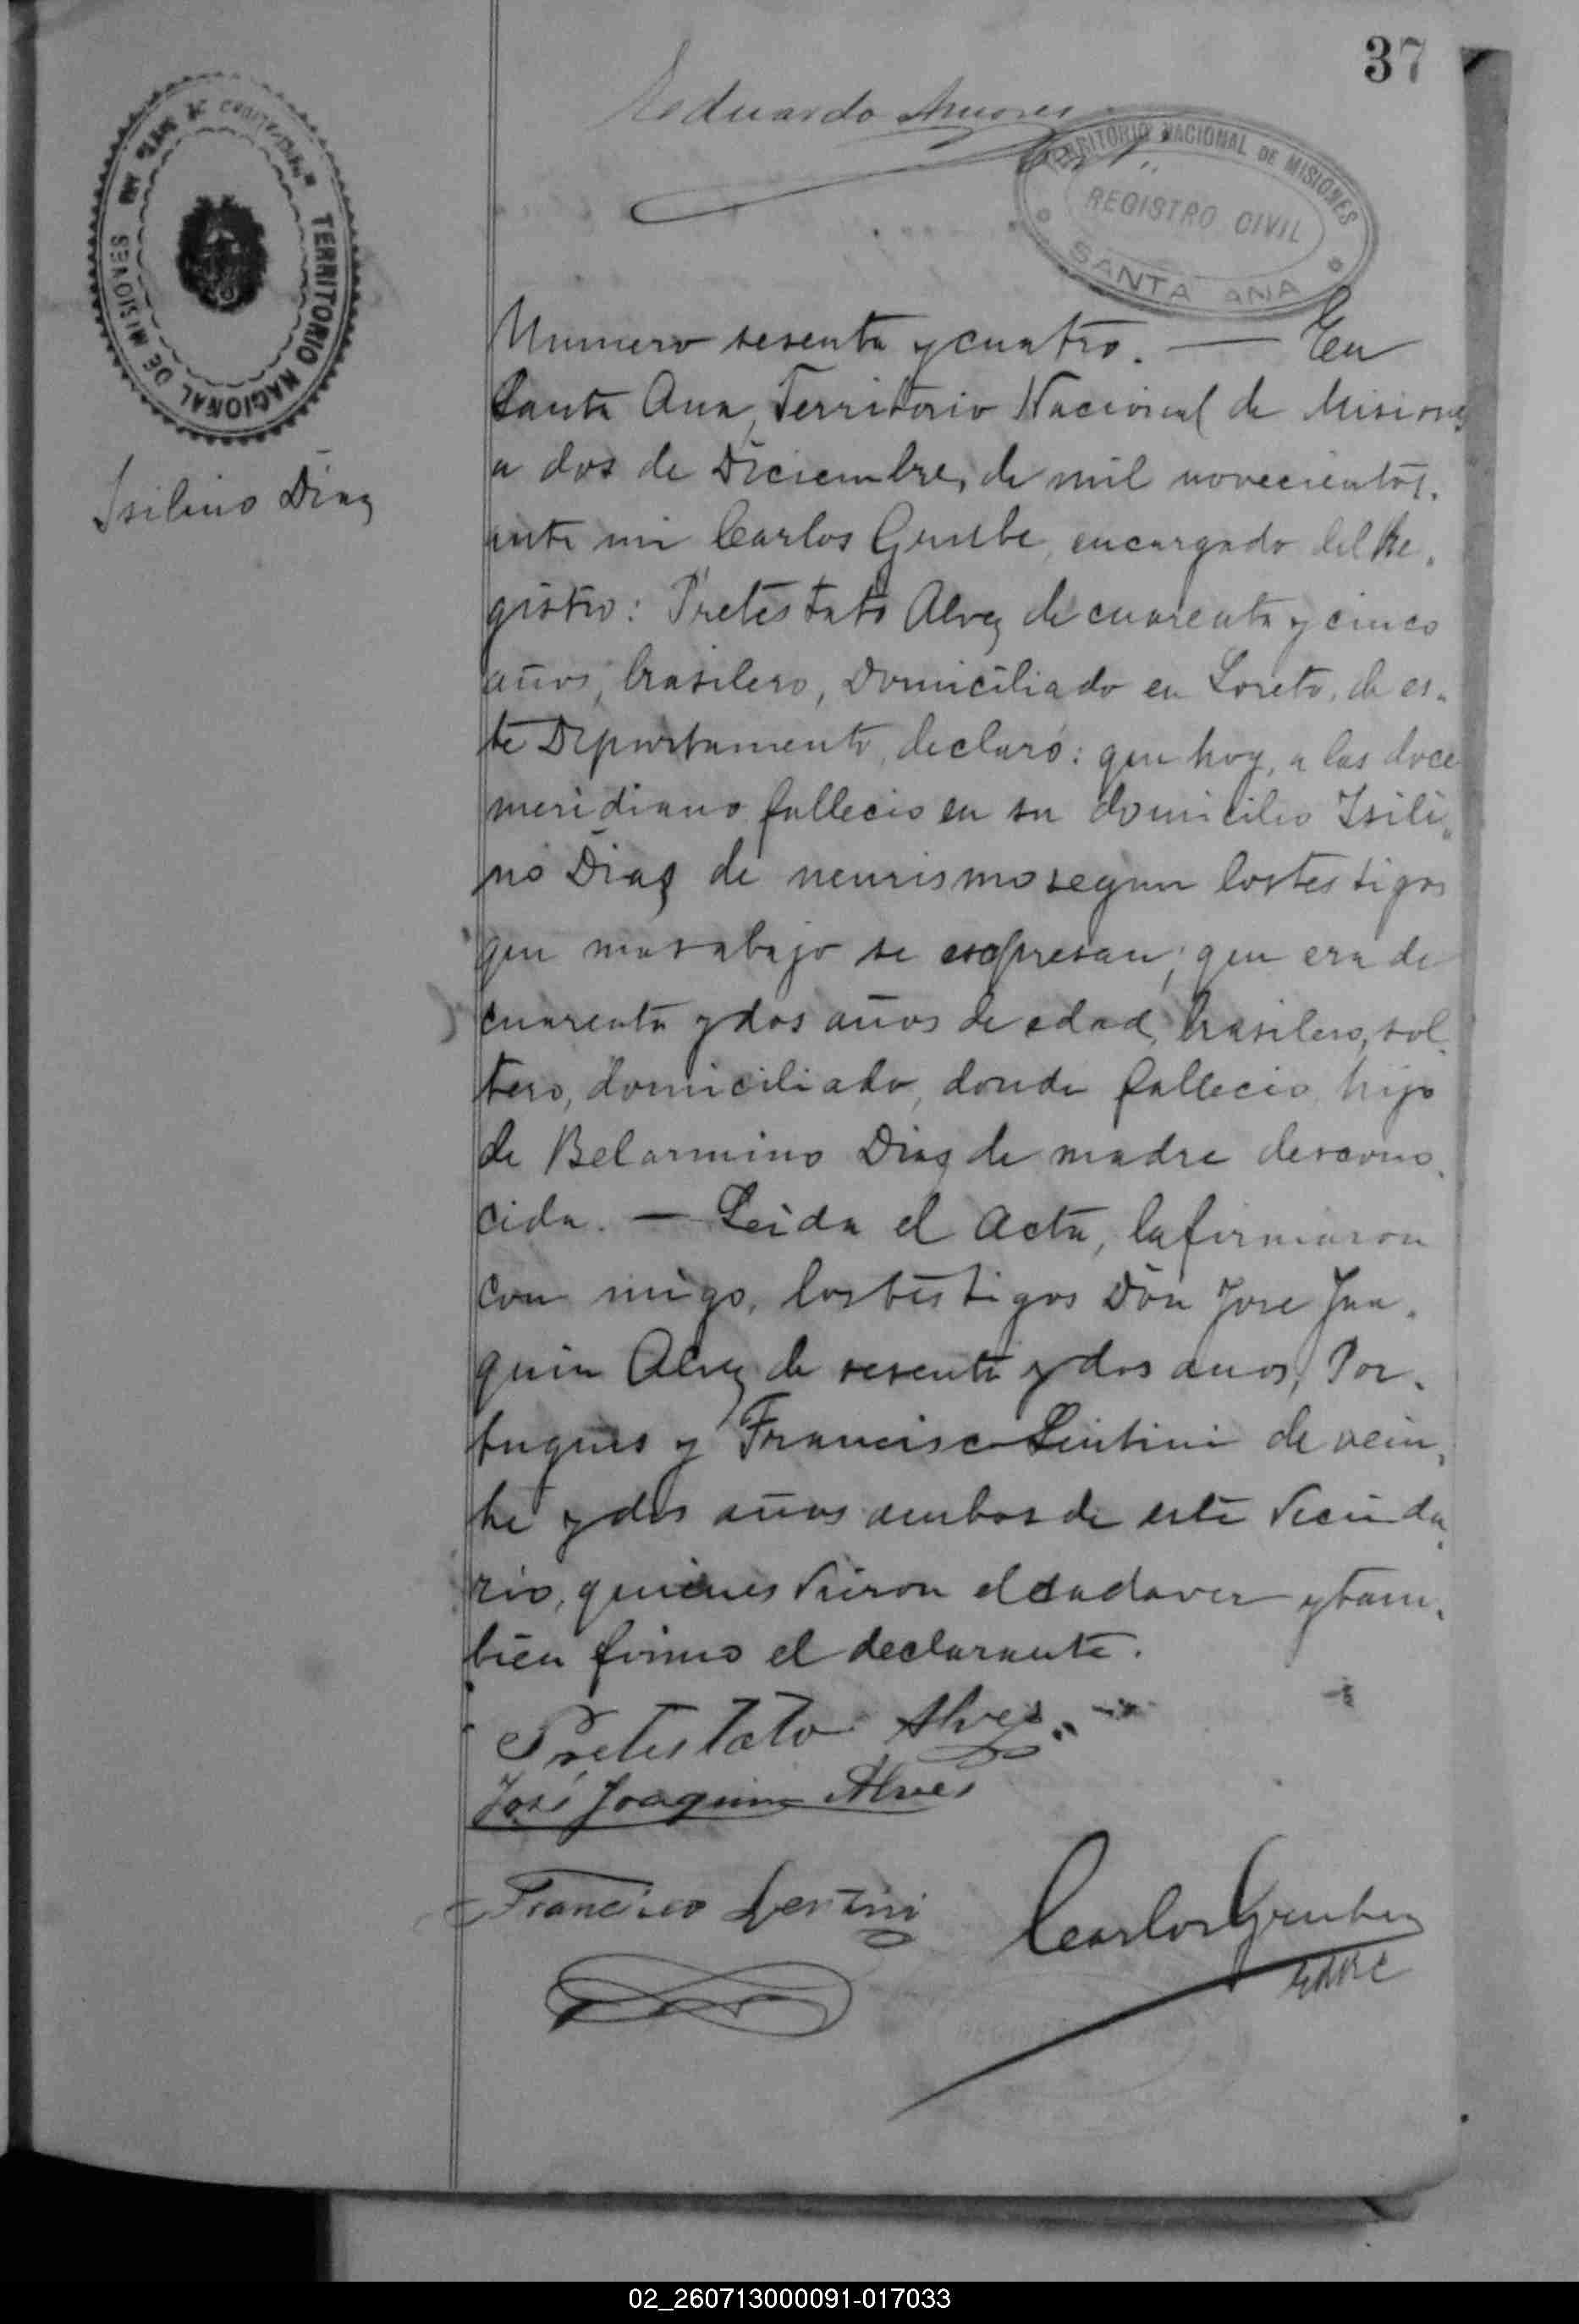 37
Eduardo
TERRITORIO NACIONAL DE MISIONES
REGISTRO CIVIL
SANTA ANA
TERRITORIO NACIONAL DE MISIONES
Isilino Diaz
Numero sesenta y cuatro. — En
Santa Ana, Territorio Nacional de Misiones
a dos de Diciembre, de mil novecientos.
ante mi Carlos Gruber, encargado del Re-
gistro: Pretestato Alvez de cuarenta y cinco
años, brasilero, domiciliado en Loreto, de es-
te Departamento, declaró: que hoy, a las doce
meridiano fallecio en su domicilio Isili-
no Diaz de neurismo segun los testigos
que mas abajo se esxpresan; que era de
cuarenta y dos años de edad, brasilero, sol-
tero, domiciliado, donde fallecio, hijo
de Belarmino Diaz de madre descono-
cida. — Leida el Acta, la firmaron
con migo, los testigos Don Jose Jua-
quin Alvez de sesenta y dos anos, Por-
tugues y Francisco Lentini de vein-
te y dos años ambos de este Vecinda-
rio, quienes Vieron el cadaver y tam-
bien firmo el declarante.
Pretestato Alves
José Joaquim Alves
Francisco Lentini
Carlos Gruber
02_260713000091-017033